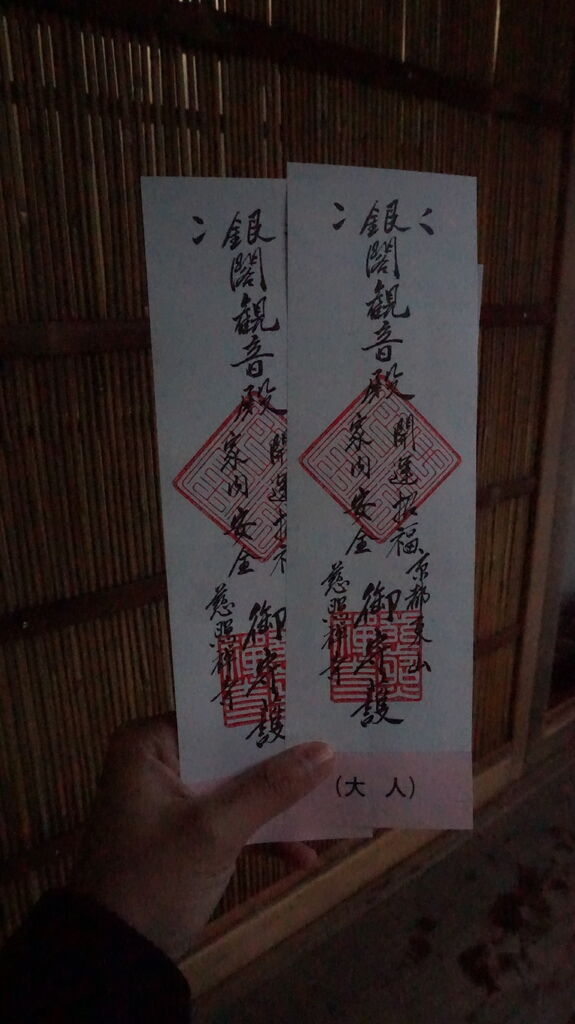 銀閣観音殿
家内安全
開運招福
御守護
慈照禅寺
銀閣観音殿
開運招福
家内安全
京都東山
御守護
慈照禅寺
(大 人)